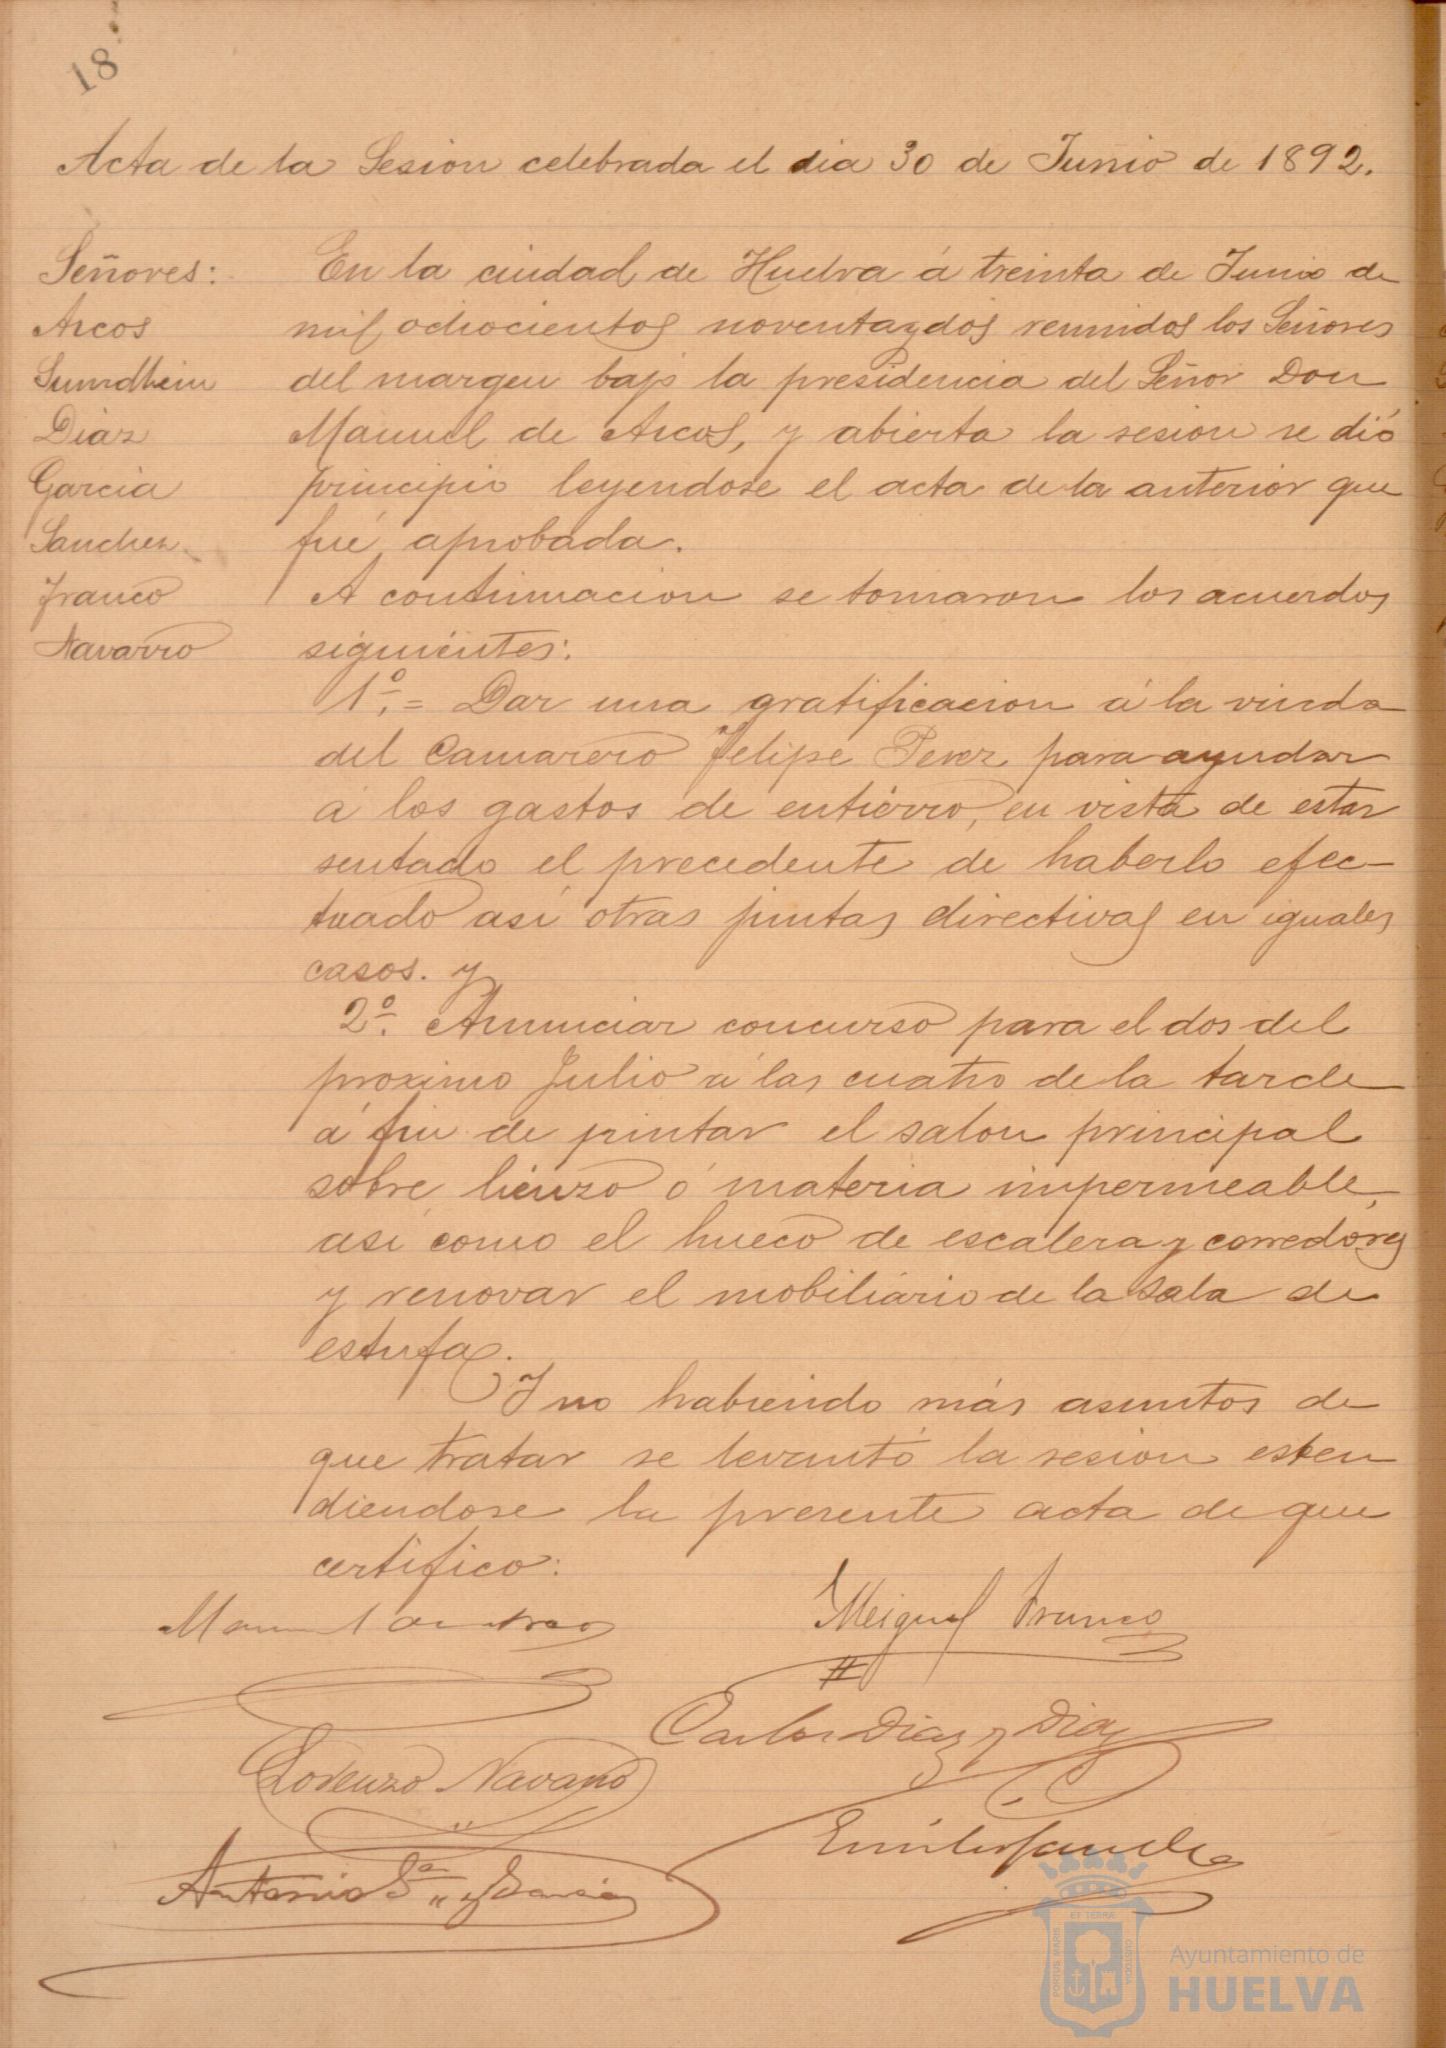 18
Acta de la Sesion celebrada el dia 30 de Junio de 1892.
Señores:
Arcos
Sumdhein
Diaz
Garcia
Sanchez
Franco
Navarro
En la ciudad de Huelva á treinta de Junio de
mil ochocientos noventaydos reunidos los Señores
del margen bajo la presidencia del Señor Don
Manuel de Arcos, y abierta la sesion se dió
principio leyendose el acta de la anterior que
fué aprobada.
A continuacion se tomaron los acuerdos
siguientes:
1º.= Dar una gratificacion á la viuda
del Camarero Felipe Perez para ayudar
á los gastos de entierro, en vista de estar
sentado el precedente de haberlo efec-
tuado así otras juntas directivas en iguales
casos. y
2º. Anunciar concurso para el dos del
proximo Julio á las cuatro de la tarde
á fin de pintar el salon principal
sobre lienzo ó materia impermeable,
así como el hueco de escalera y corredores
y renovar el mobiliario de la sala de
estufa.
Y no habiendo más asuntos de
que tratar se levantó la sesion esten
diendose la presente acta de que
certifico:
Manuel de Arcos
Meiguel Franco
Carlos Diaz y Diaz
Lorenzo Navarro
Emilio Sanche
Antonio Gª y Garcia
PORTUS MARIS ET TERRÆ CUSTODIA
Ayuntamiento de
HUELVA